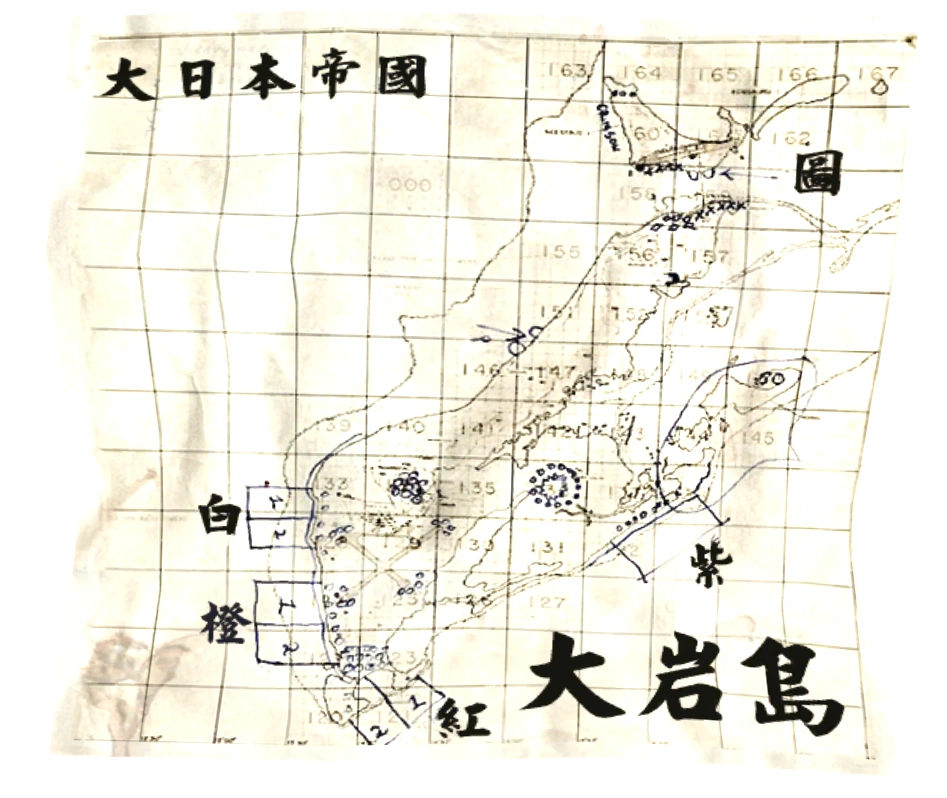 大日本帝國
163 164 165 166 167
CRIMSON 160 162
圖
000
158
155 156 157
151 152
146 147
50
139 140 141 142 143 144 145
133 135
白 1 2
129 130 131
紫
125 127
橙 1 2
123
大岩島
120
紅 1 2